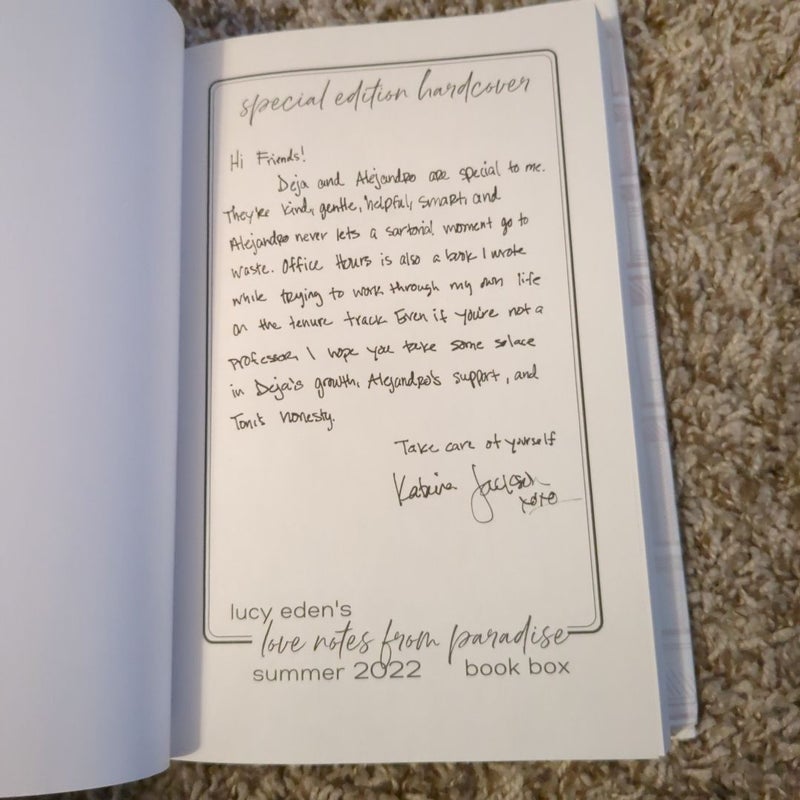 special edition hardcover
Hi Friends!
Deja and Alejandro are special to me.
They're kind, gentle, helpful, smart, and
Alejandro never lets a sartorial moment go to
waste. Office Hours is also a book I wrote
while trying to work through my own life
on the tenure track. Even if you're not a
professor, I hope you take some solace
in Deja's growth, Alejandro's support, and
Toni's honesty.
Take care of yourself
Katrina Jackson
xoxo
lucy eden's
love notes from paradise
summer 2022 book box